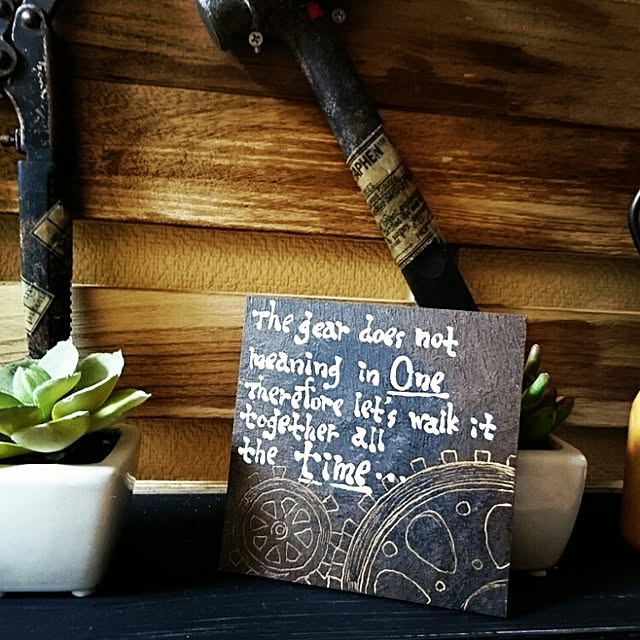 The gear does not
meaning in One
Therefore let's walk it
together all
the time...
APHEN